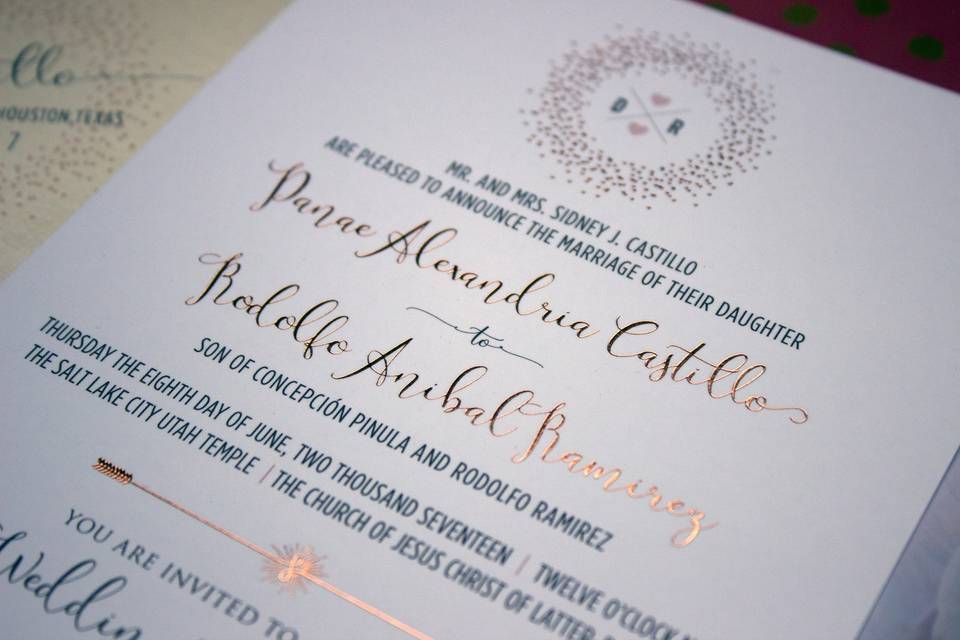 llo
HOUSTON,TEXAS
7
D R
MR. AND MRS. SIDNEY J. CASTILLO
ARE PLEASED TO ANNOUNCE THE MARRIAGE OF THEIR DAUGHTER
Danae Alexandria Castillo
to
Rodolfo Anibal Ramirez
SON OF CONCEPCIÓN PINULA AND RODOLFO RAMIREZ
THURSDAY THE EIGHTH DAY OF JUNE, TWO THOUSAND SEVENTEEN | TWELVE O'CLOCK
THE SALT LAKE CITY UTAH TEMPLE | THE CHURCH OF JESUS CHRIST OF LATTER-
&
YOU ARE INVITED TO
Wedding